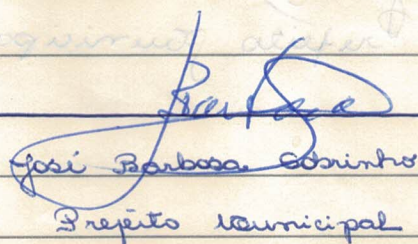 José Barbosa Sobrinho
Prefeito Municipal